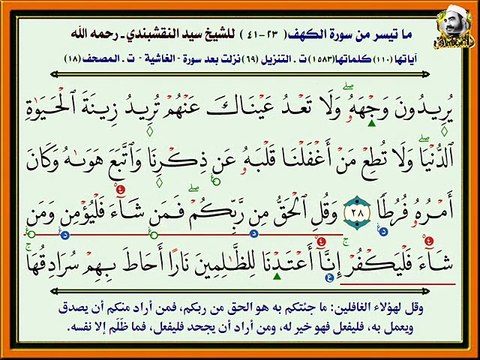 ما تيسر من سورة الكهف ( ٢٣-٤١ ) للشيخ سيد النقشبندي ـ رحمه الله
آياتها(١١٠) كلماتها(١٥٨٣) ت . التنزيل (٦٩) نزلت بعد سورة - الغاشية - ت . المصحف (١٨)
يُرِيدُونَ وَجْهَهُۥ وَلَا تَعْدُ عَيْنَاكَ عَنْهُمْ تُرِيدُ زِينَةَ ٱلْحَيَوٰةِ
ٱلدُّنْيَا وَلَا تُطِعْ مَنْ أَغْفَلْنَا قَلْبَهُۥ عَن ذِكْرِنَا وَٱتَّبَعَ هَوَىٰهُ وَكَانَ
أَمْرُهُۥ فُرُطًا ٢٨ وَقُلِ ٱلْحَقُّ مِن رَّبِّكُمْ فَمَن شَآءَ فَلْيُؤْمِن وَمَن
شَآءَ فَلْيَكْفُرْ إِنَّآ أَعْتَدْنَا لِلظَّٰلِمِينَ نَارًا أَحَاطَ بِهِمْ سُرَادِقُهَا
وقل لهؤلاء الغافلين: ما جئتكم به هو الحق من ربكم، فمن أراد منكم أن يصدق
ويعمل به، فليفعل فهو خير له، ومن أراد أن يجحد فليفعل، فما ظَلَم إلا نفسه.